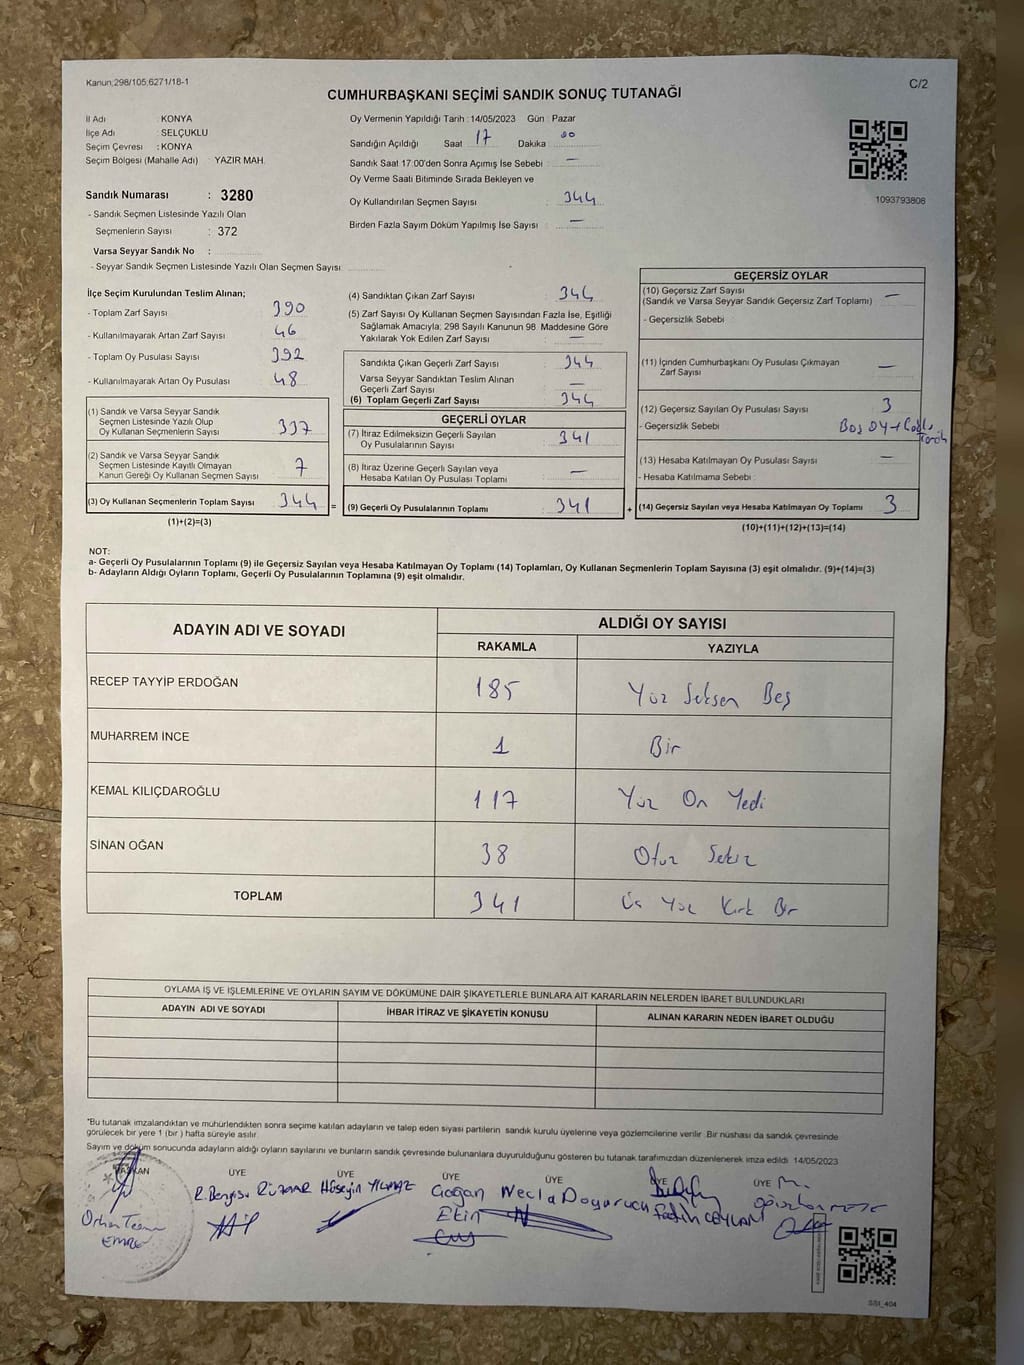 Kanun;298/105;6271/18-1
C/2
CUMHURBAŞKANI SEÇİMİ SANDIK SONUÇ TUTANAĞI
İl Adı : KONYA
İlçe Adı : SELÇUKLU
Seçim Çevresi : KONYA
Seçim Bölgesi (Mahalle Adı) YAZIR MAH.
Sandık Numarası : 3280
- Sandık Seçmen Listesinde Yazılı Olan
Seçmenlerin Sayısı : 372
Varsa Seyyar Sandık No :
- Seyyar Sandık Seçmen Listesinde Yazılı Olan Seçmen Sayısı
Oy Vermenin Yapıldığı Tarih : 14/05/2023 Gün : Pazar
Sandığın Açıldığı Saat 17 Dakika 00
Sandık Saat 17:00'den Sonra Açımış İse Sebebi : —
Oy Verme Saati Bitiminde Sırada Bekleyen ve
Oy Kullandırılan Seçmen Sayısı : 344
Birden Fazla Sayım Döküm Yapılmış İse Sayısı : —
1093793808
İlçe Seçim Kurulundan Teslim Alınan;
- Toplam Zarf Sayısı 390
- Kullanılmayarak Artan Zarf Sayısı 46
- Toplam Oy Pusulası Sayısı 392
- Kullanılmayarak Artan Oy Pusulası 48
(1) Sandık ve Varsa Seyyar Sandık
Seçmen Listesinde Yazılı Olup
Oy Kullanan Seçmenlerin Sayısı 337
(2) Sandık ve Varsa Seyyar Sandık
Seçmen Listesinde Kayıtlı Olmayan
Kanun Gereği Oy Kullanan Seçmen Sayısı 7
(3) Oy Kullanan Seçmenlerin Toplam Sayısı 344 =
(1)+(2)=(3)
(4) Sandıktan Çıkan Zarf Sayısı : 344
(5) Zarf Sayısı Oy Kullanan Seçmen Sayısından Fazla İse, Eşitliği
Sağlamak Amacıyla; 298 Sayılı Kanunun 98 Maddesine Göre
Yakılarak Yok Edilen Zarf Sayısı : —
Sandıkta Çıkan Geçerli Zarf Sayısı : 344
Varsa Seyyar Sandıktan Teslim Alınan
Geçerli Zarf Sayısı : —
(6) Toplam Geçerli Zarf Sayısı : 344
GEÇERLİ OYLAR
(7) İtiraz Edilmeksizin Geçerli Sayılan
Oy Pusulalarının Sayısı : 341
(8) İtiraz Üzerine Geçerli Sayılan veya
Hesaba Katılan Oy Pusulası Toplamı : —
(9) Geçerli Oy Pusulalarının Toplamı : 341 +
GEÇERSİZ OYLAR
(10) Geçersiz Zarf Sayısı
(Sandık ve Varsa Seyyar Sandık Geçersiz Zarf Toplamı) —
- Geçersizlik Sebebi :
(11) İçinden Cumhurbaşkanı Oy Pusulası Çıkmayan
Zarf Sayısı —
(12) Geçersiz Sayılan Oy Pusulası Sayısı 3
- Geçersizlik Sebebi : Boş Oy +
(13) Hesaba Katılmayan Oy Pusulası Sayısı —
- Hesaba Katılmama Sebebi :
(14) Geçersiz Sayılan veya Hesaba Katılmayan Oy Toplamı 3
(10)+(11)+(12)+(13)=(14)
NOT:
a- Geçerli Oy Pusulalarının Toplamı (9) ile Geçersiz Sayılan veya Hesaba Katılmayan Oy Toplamı (14) Toplamları, Oy Kullanan Seçmenlerin Toplam Sayısına (3) eşit olmalıdır. (9)+(14)=(3)
b- Adayların Aldığı Oyların Toplamı, Geçerli Oy Pusulalarının Toplamına (9) eşit olmalıdır.
ADAYIN ADI VE SOYADI ALDIĞI OY SAYISI
RAKAMLA YAZIYLA
RECEP TAYYİP ERDOĞAN 185 Yüz Seksen Beş
MUHARREM İNCE 1 Bir
KEMAL KILIÇDAROĞLU 117 Yüz On Yedi
SİNAN OĞAN 38 Otuz Sekiz
TOPLAM 341 Üç Yüz Kırk Bir
OYLAMA İŞ VE İŞLEMLERİNE VE OYLARIN SAYIM VE DÖKÜMÜNE DAİR ŞİKAYETLERLE BUNLARA AİT KARARLARIN NELERDEN İBARET BULUNDUKLARI
ADAYIN ADI VE SOYADI İHBAR İTİRAZ VE ŞİKAYETİN KONUSU ALINAN KARARIN NEDEN İBARET OLDUĞU
*Bu tutanak imzalandıktan ve mühürlendikten sonra seçime katılan adayların ve talep eden siyasi partilerin sandık kurulu üyelerine veya gözlemcilerine verilir. Bir nüshası da sandık çevresinde
görülecek bir yere 1 (bir ) hafta süreyle asılır.
Sayım ve döküm sonucunda adayların aldığı oyların sayılarını ve bunların sandık çevresinde bulunanlara duyurulduğunu gösteren bu tutanak tarafımızdan düzenlenerek imza edildi. 14/05/2023
BAŞKAN ÜYE ÜYE ÜYE ÜYE ÜYE ÜYE
R. Bengisu RÜZGAR Hüseyin YILMAZ Necla Doğurucu Fatih CEYLAN
Ekin
EMRE
SSI_404